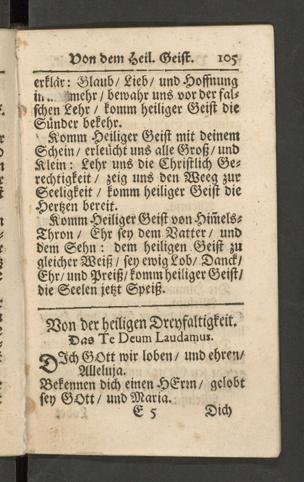 Von dem Heil. Geist. 105
erklär: Glaub/ Lieb/ und Hoffnung
in mehr/ bewahr uns vor der fal-
schen Lehr/ komm heiliger Geist die
Sünder bekehr.
Komm Heiliger Geist mit deinem
Schein/ erleucht uns alle Groß/ und
Klein: Lehr uns die Christlich Ge-
rechtigkeit/ zeig uns den Weeg zur
Seeligkeit / komm heiliger Geist die
Hertzen bereit.
Komm Heiliger Geist von Him̄els-
Thron/ Ehr sey dem Vatter/ und
dem Sohn: dem heiligen Geist zu
gleicher Weiß/ sey ewig Lob/ Danck/
Ehr/ und Preiß/ komm heiliger Geist/
die Seelen jetzt Speiß.
Von der heiligen Dreyfaltigkeit.
Das Te Deum Laudamus.
DIch GOtt wir loben/ und ehren/
Alleluja.
Bekennen dich einen HErrn/ gelobt
sey GOtt/ und Maria.
E 5 Dich